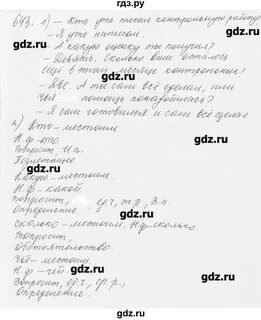 gdz.ru
643. 1) – Кто уже писал контрольную работу?
– Я уже написал.
– А какую оценку ты получил?
– Девять. Сколько вам осталось
ещё в этом месяце контрольных?
– Две. А ты сам всё сделал, или
чья – помощь понадобилась?
– Я сам готовился и сам всё сделал
2) Кто – местоим
Н.ф – кто
Вопросит, И.п.
Подлежащее
Какую – местоим.
Н.ф – какой.
Вопросит, ед.ч, п, В.п.
Определение
Сколько – местоим. Н.ф сколько.
Вопросит,
Обстоятельство.
Чья – местоим
Н.ф – чей.
Вопросит, ед.ч, р.,
Определение.
gdz.ru